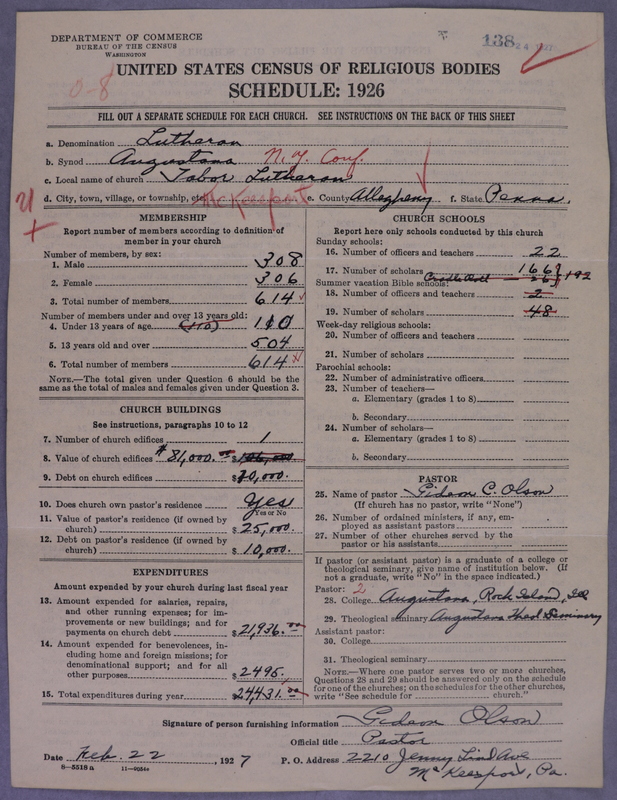 DEPARTMENT OF COMMERCE
BUREAU OF THE CENSUS
WASHINGTON
138
UNITED STATES CENSUS OF RELIGIOUS BODIES
SCHEDULE: 1926
0-8
FILL OUT A SEPARATE SCHEDULE FOR EACH CHURCH. SEE INSTRUCTIONS ON THE BACK OF THIS SHEET
a. Denomination Lutheran
b. Synod Augustana N.Y. Conf.
c. Local name of church Tabor Lutheran
d. City, town, village, or township, etc. McKeesport e. County Allegheny f. State Penna.
MEMBERSHIP
Report number of members according to definition of member in your church
Number of members, by sex:
1. Male 308
2. Female 306
3. Total number of members 614
Number of members under and over 13 years old:
4. Under 13 years of age (110) 110
5. 13 years old and over 504
6. Total number of members 614
NOTE.—The total given under Question 6 should be the
same as the total of males and females given under Question 3.
CHURCH BUILDINGS
See instructions, paragraphs 10 to 12
7. Number of church edifices 1
8. Value of church edifices #81,000.00 $106,000.
9. Debt on church edifices $10,000.
10. Does church own pastor's residence? Yes
Yes or No
11. Value of pastor's residence (if owned by
church) $25,000.
12. Debt on pastor's residence (if owned by
church) $10,000.
EXPENDITURES
Amount expended by your church during last fiscal year
13. Amount expended for salaries, repairs,
and other running expenses; for im-
provements or new buildings; and for
payments on church debt $21,936.00
14. Amount expended for benevolences, in-
cluding home and foreign missions; for
denominational support; and for all
other purposes $2495.
15. Total expenditures during year $24,431.00
CHURCH SCHOOLS
Report here only schools conducted by this church
Sunday schools:
16. Number of officers and teachers 22
17. Number of scholars 166 } 192
Cradle Roll — 26
Summer vacation Bible schools:
18. Number of officers and teachers 2
19. Number of scholars 48
Week-day religious schools:
20. Number of officers and teachers
21. Number of scholars
Parochial schools:
22. Number of administrative officers
23. Number of teachers—
a. Elementary (grades 1 to 8)
b. Secondary
24. Number of scholars—
a. Elementary (grades 1 to 8)
b. Secondary
PASTOR
25. Name of pastor Gideon C. Olson
(If church has no pastor, write "None")
26. Number of ordained ministers, if any, em-
ployed as assistant pastors
27. Number of other churches served by the
pastor or his assistants
If pastor (or assistant pastor) is a graduate of a college or
theological seminary, give name of institution below. (If
not a graduate, write "No" in the space indicated.)
Pastor: 2
28. College Augustana, Rock Island, Ill
29. Theological seminary Augustana Theol Seminary
Assistant pastor:
30. College
31. Theological seminary
NOTE.—Where one pastor serves two or more churches,
Questions 28 and 29 should be answered only on the schedule
for one of the churches; on the schedules for the other churches,
write "See schedule for church."
Signature of person furnishing information Gideon Olson
Official title Pastor
Date Feb. 22, 1927 P. O. Address 2210 Jenny Lind Ave
McKeesport, Pa.
8—5518 a 11—9034